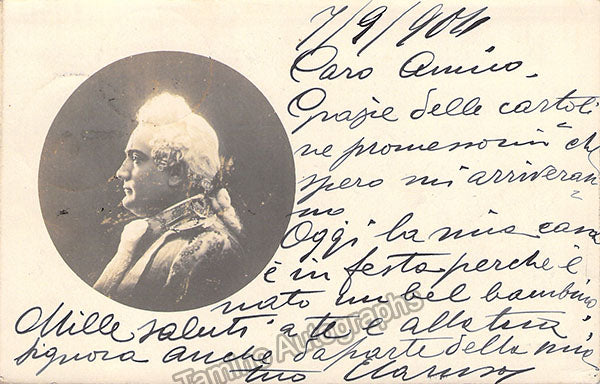 7/9/904
Caro Amico.
Grazie delle cartoli
ne promessomi che
spero mi arriveran
no
Oggi la mia casa
è in festa perchè è
nato un bel bambino
Mille saluti a te e alla tua
signora anche da parte della mia
tuo ECaruso
Tamino Autographs